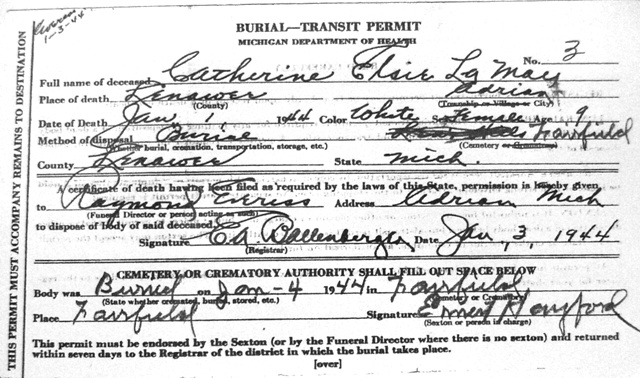 1-3-44
BURIAL—TRANSIT PERMIT
MICHIGAN DEPARTMENT OF HEALTH
No. 3
Full name of deceased Catherine Elsie La May
Place of death Lenawee Adrian
(County) (Township or Village or City)
Date of Death Jan 1 1944 Color White Sex Female Age 9
Method of disposal Burial Fairfield
(Whether burial, cremation, transportation, storage, etc.) (Cemetery or Crematory)
County Lenawee State Mich.
A certificate of death having been filed as required by the laws of this State, permission is hereby given
to Raymond Everiss Address Adrian Mich
(Funeral Director or person acting as such)
to dispose of body of said deceased.
Signature E.A. Ballenberger Date Jan, 3, 1944
(Registrar)
CEMETERY OR CREMATORY AUTHORITY SHALL FILL OUT SPACE BELOW
Body was Buried on Jan-4 1944 in Fairfield
(State whether cremated, buried, stored, etc.) (Cemetery or Crematory)
Place Fairfield Signature Ernest
(Sexton or person in charge)
This permit must be endorsed by the Sexton (or by the Funeral Director where there is no sexton) and returned
within seven days to the Registrar of the district in which the burial takes place.
[over]
THIS PERMIT MUST ACCOMPANY REMAINS TO DESTINATION